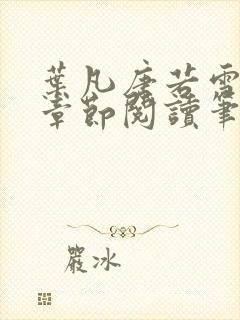 葉凡唐若雪
章節閱讀筆
嚴冰